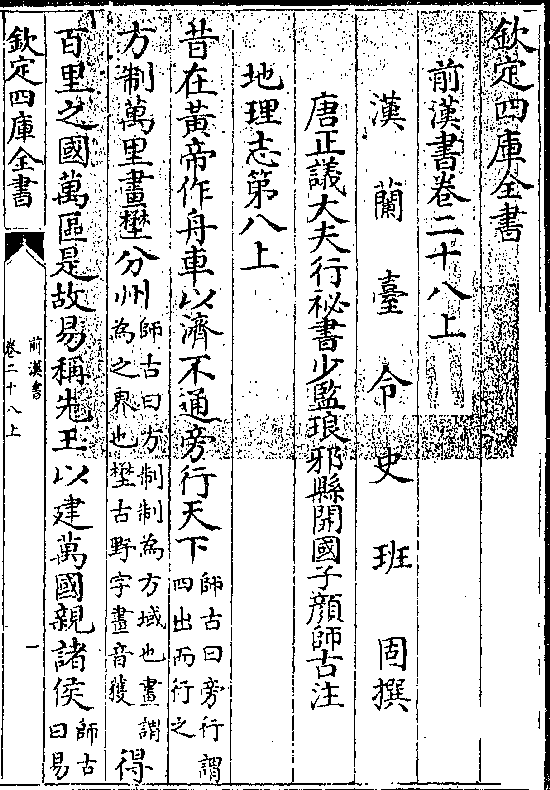 欽定四庫全書
前漢書卷二十八上
漢蘭臺令史班固撰
唐正議大夫行祕書少監琅邪縣開國子顔師古注
地理志第八上
昔在黃帝作舟車以濟不通旁行天下師古曰旁行謂四出而行之
方制萬里畫壄分州師古曰方制制為方域也畫謂為之界也壄古野字畫音獲得
百里之國萬區是故易稱先王以建萬國親諸侯師古曰易
欽定四庫全書
前漢書
卷二十八上
一